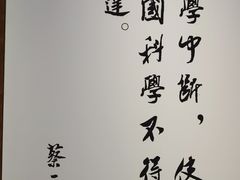 學中斷，使
國科學不得
達。
蔡